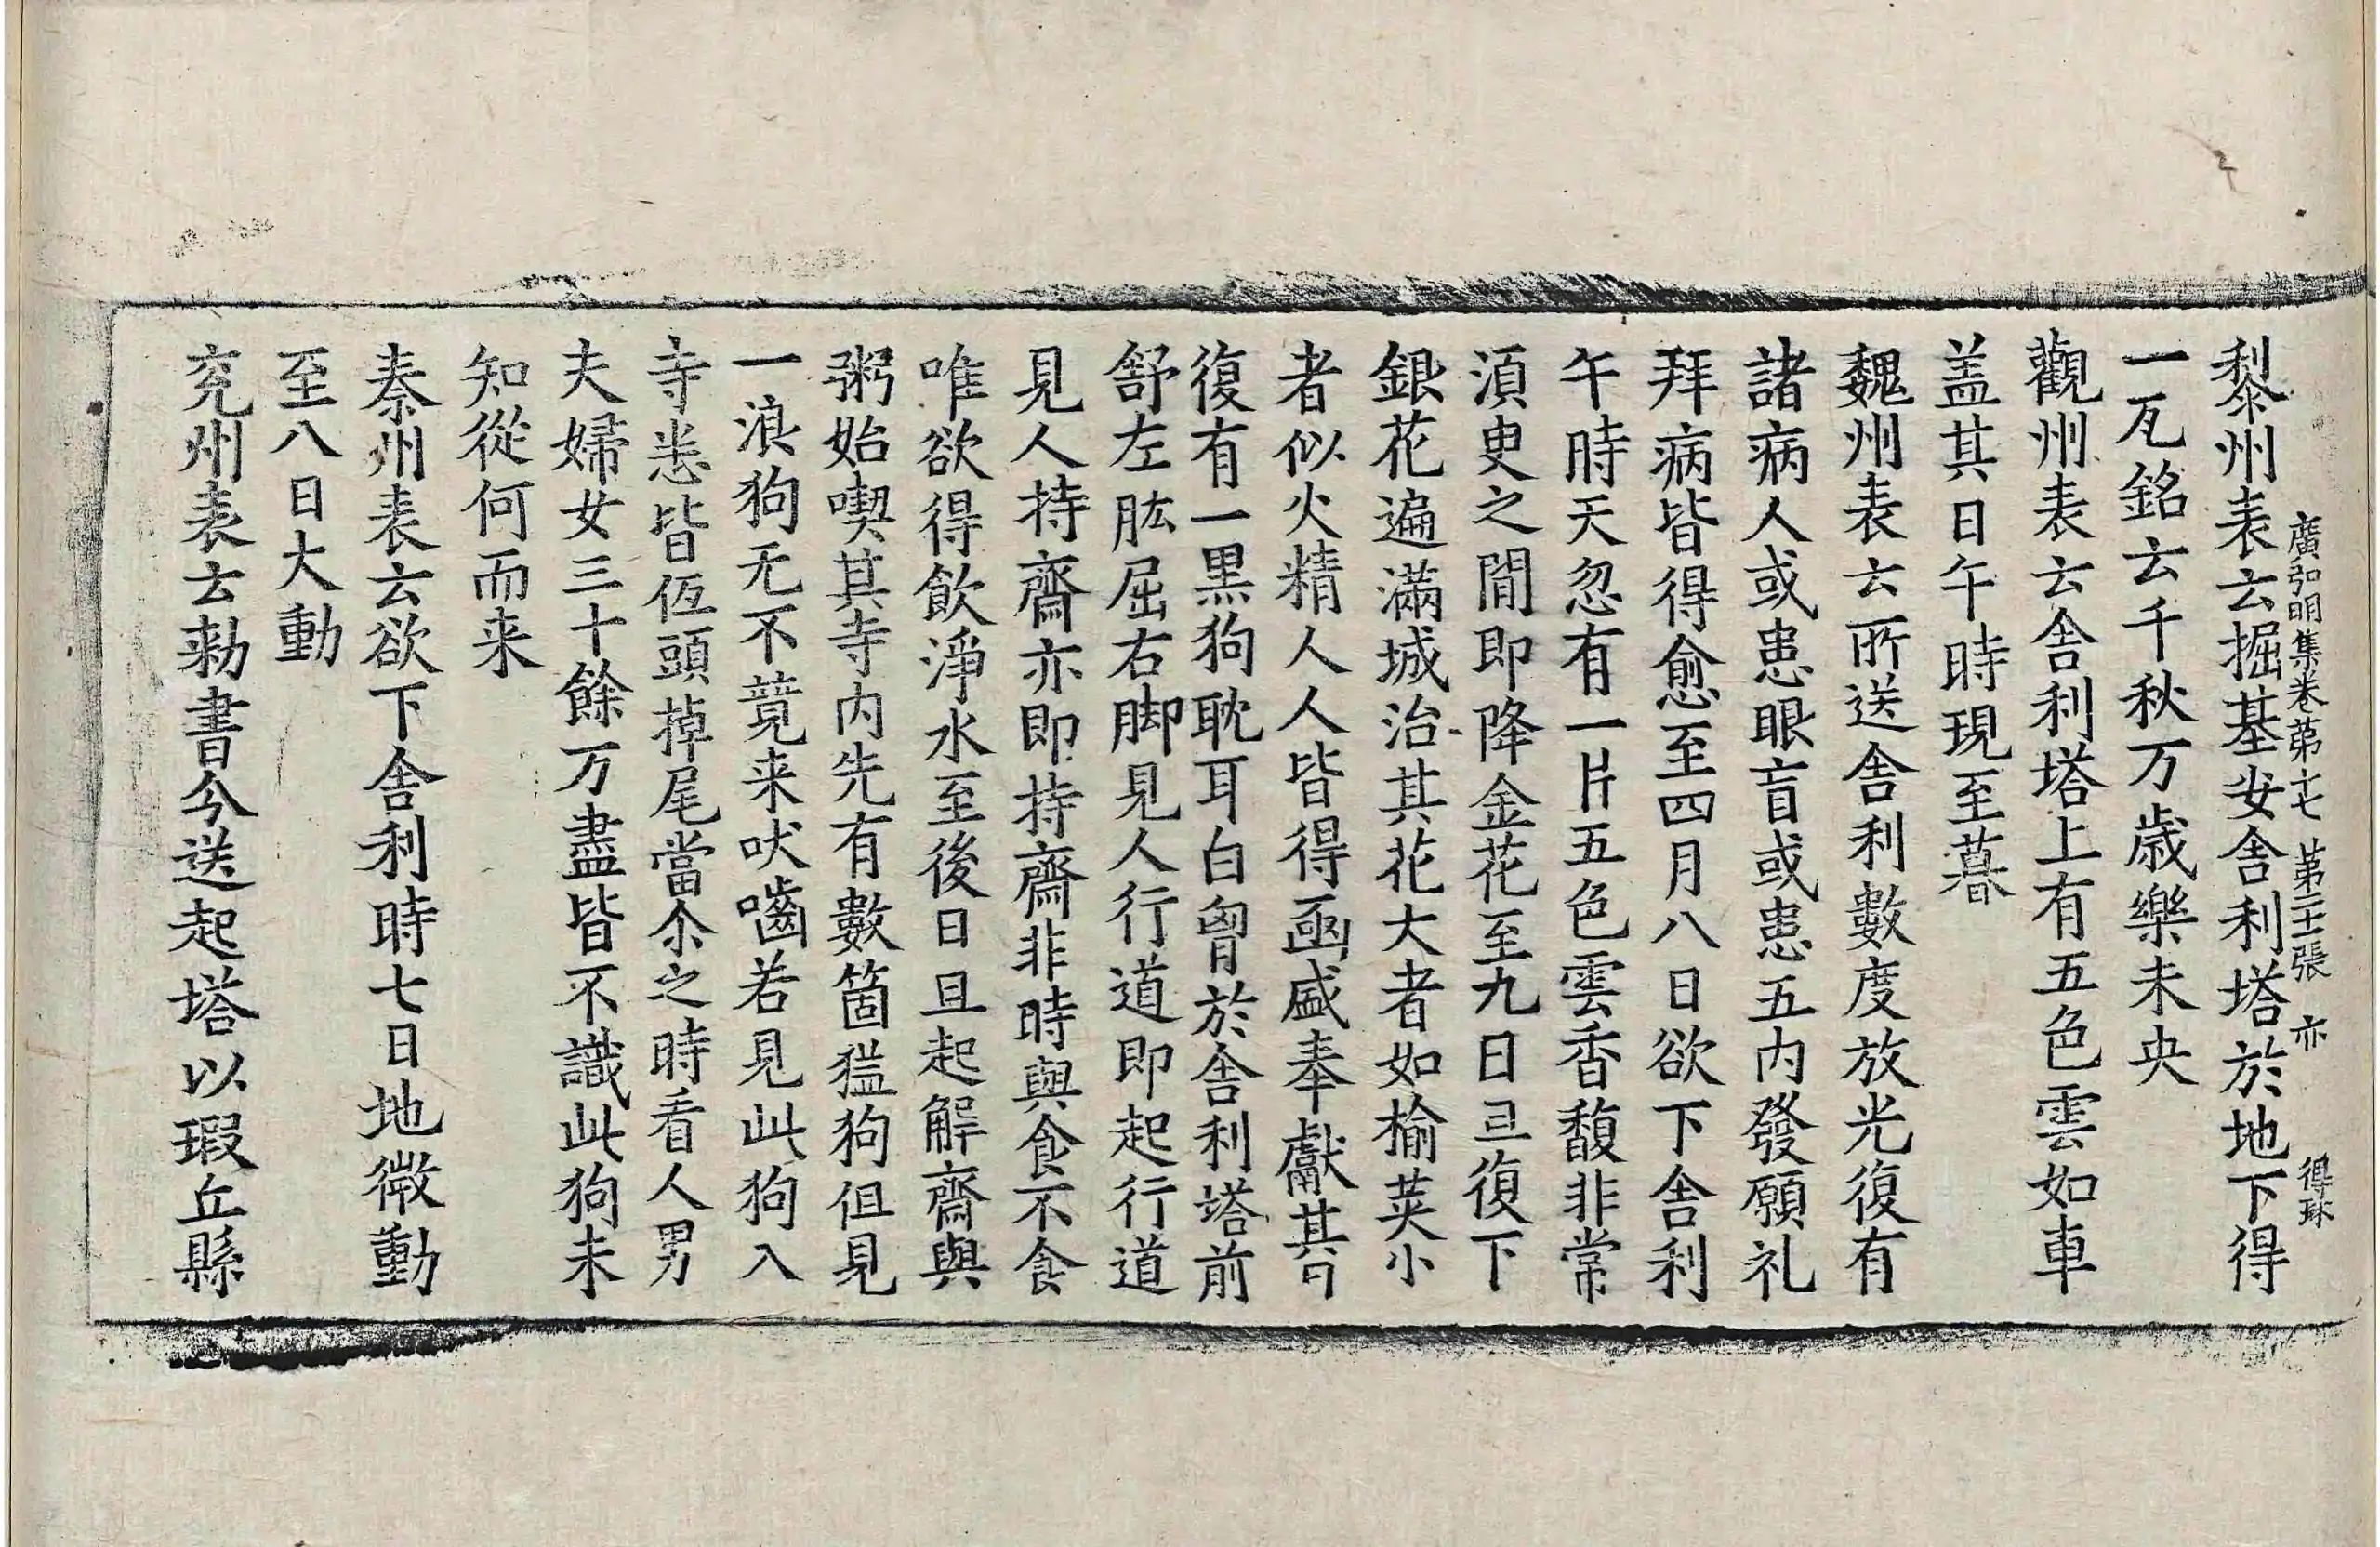 廣弘明集卷第十七 第二十一張 亦 得琳
黎州表云掘基安舍利塔於地下得
一瓦銘云千秋万歳樂未央
觀州表云舍利塔上有五色雲如車
盖其日午時現至暮
魏州表云所送舍利數度放光復有
諸病人或患眼盲或患五内發願礼
拜病皆得愈至四月八日欲下舍利
午時天忽有一片五色雲香馥非常
湏臾之間即降金花至九日旦復下
銀花遍滿城治其花大者如榆莢小
者似火精人人皆得函盛奉獻其日
復有一黒狗耽耳白胷於舍利塔前
舒左肱屈右脚見人行道即起行道
見人持齋亦即持齋非時與食不食
唯欲得飲淨水至後日旦起解齋與
粥始喫其寺内先有數箇猛狗但見
一浪狗无不競来吠嚙若見此狗入
寺悉皆低頭掉尾當尒之時看人男
夫婦女三十餘万盡皆不識此狗未
知從何而来
秦州表云欲下舍利時七日地微動
至八日大動
兖州表云勑書分送起塔以瑕丘縣